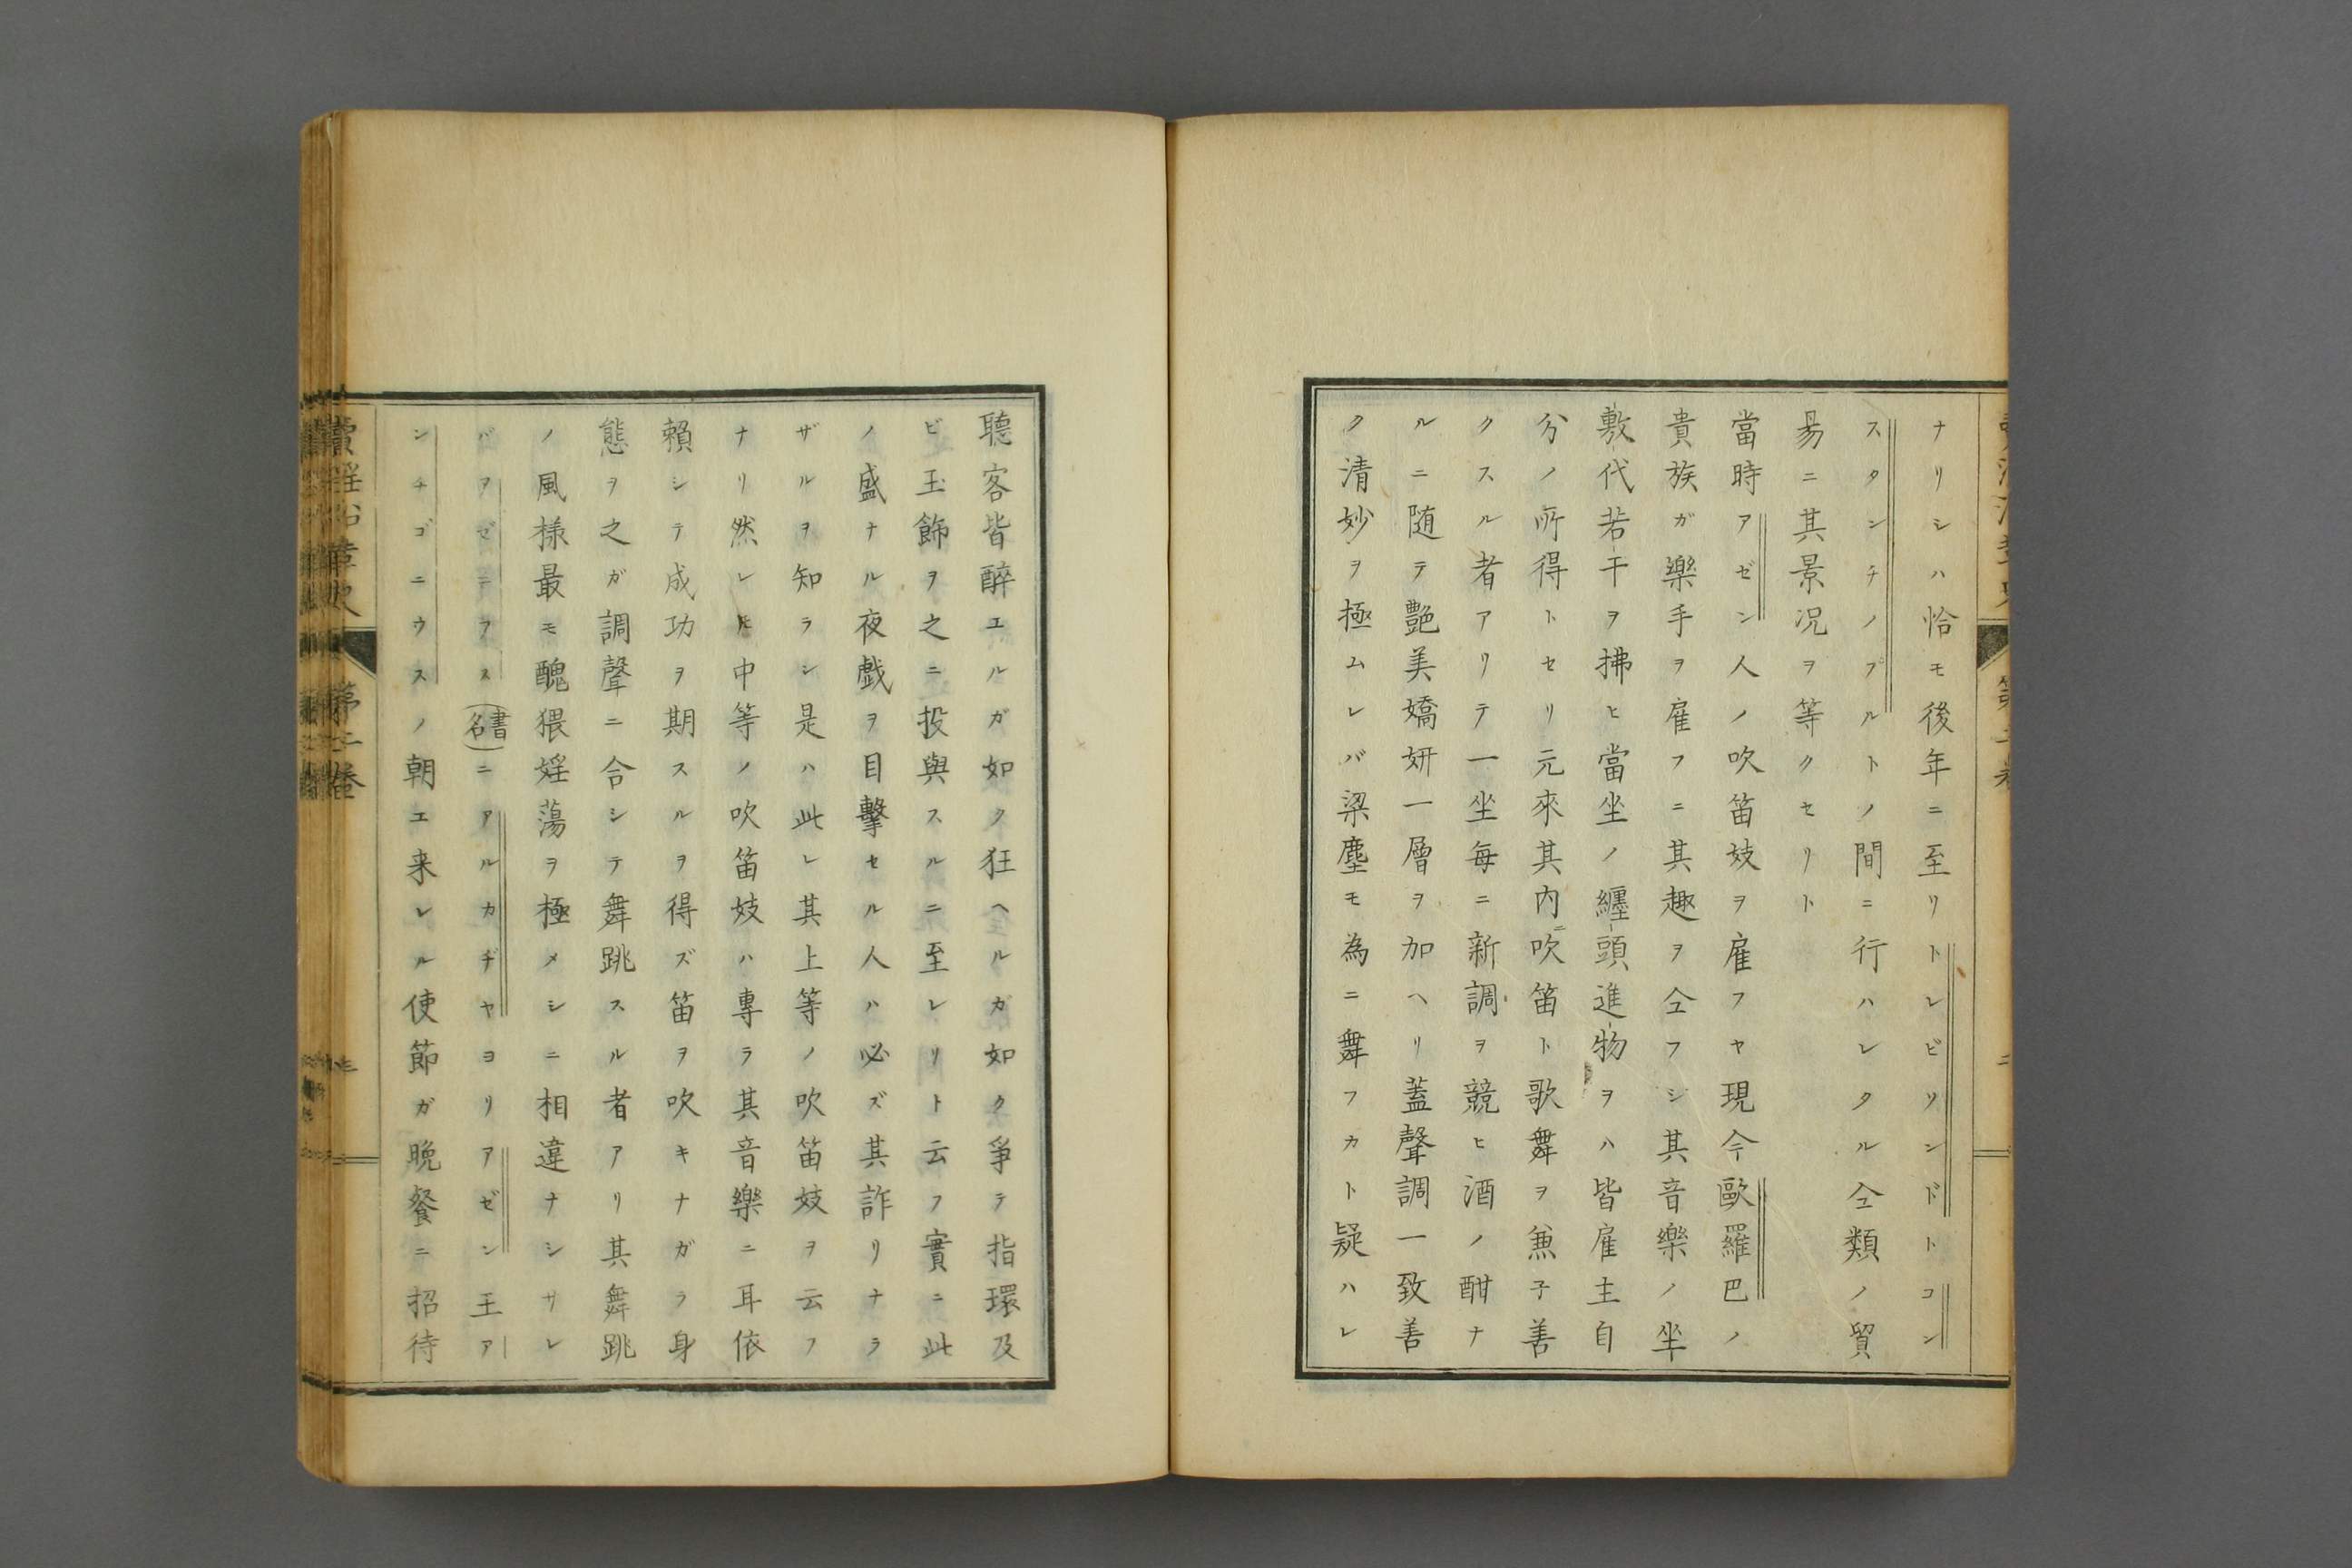 ナリシハ恰モ後年ニ至リトレビソンドトコン
スタンチノプルトノ間ニ行ハレタル仝類ノ貿
易ニ其景况ヲ等クセリト
當時アゼン人ノ吹笛妓ヲ雇フヤ現今歐羅巴ノ
貴族ガ樂手ヲ雇フニ其趣ヲ仝フシ其音樂ノ坐
敷代若干ヲ拂ヒ當坐ノ纒頭進物ヲハ皆雇主自
分ノ所得トセリ元來其内ニ吹笛ト歌舞ヲ兼子善
クスル者アリテ一坐毎ニ新調ヲ競ヒ酒ノ酣ナ
ルニ随テ艶美嬌妍一層ヲ加ヘリ蓋聲調一致善
ク清妙ヲ極ムレバ梁塵モ為ニ舞フカト疑ハレ
聽客皆醉エルガ如ク狂ヘルガ如ク爭テ指環及
ビ玉飾ヲ之ニ投與スルニ至レリト云フ實ニ此
ノ盛ナル夜戯ヲ目擊セル人ハ必ズ其詐リナラ
ザルヲ知ラシ是ハ此レ其上等ノ吹笛妓ヲ云フ
ナリ然レ𪜈中等ノ吹笛妓ハ專ラ其音樂ニ耳依
賴シテ成功ヲ期スルヲ得ズ笛ヲ吹キナガラ身
態ヲ之ガ調聲ニ合シテ舞跳スル者アリ其舞跳
ノ風様最モ醜猥婬蕩ヲ極メシニ相違ナシサレ
バアゼニアス（書名）ニアルカヂヤヨリアゼン王ア
ンチゴニウスノ朝エ来レル使節ガ晩餐ニ招待
賣婬沿革史 第二卷